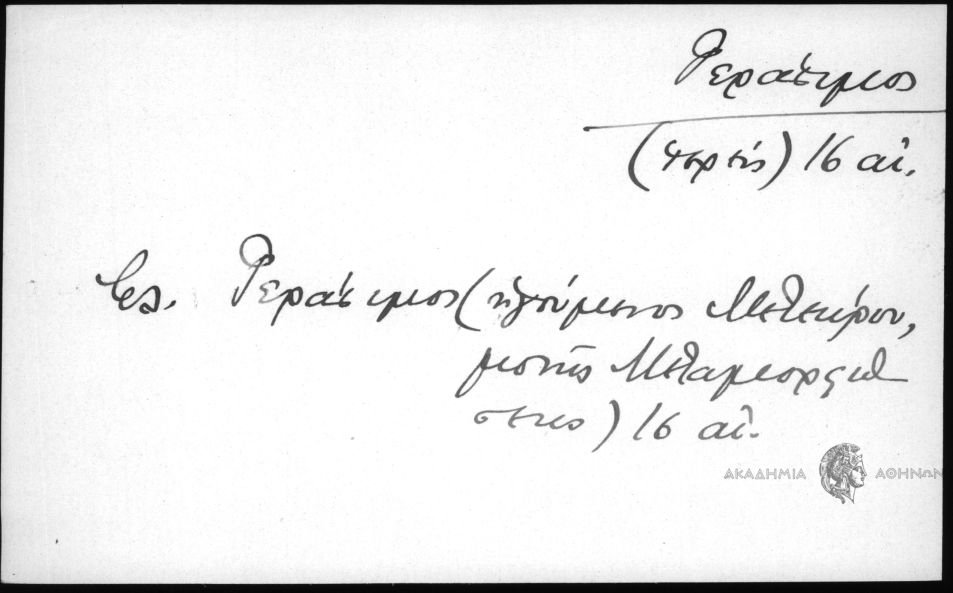 Γεράσιμος
(ιερεύς) 16 αἰ.
Βλ. Γεράσιμος (ηγούμενος Μετεώρου,
μονής Μεταμορφώ
σεως) 16 αἰ.
ΑΚΑΔΗΜΙΑ ΑΘΗΝΩΝ